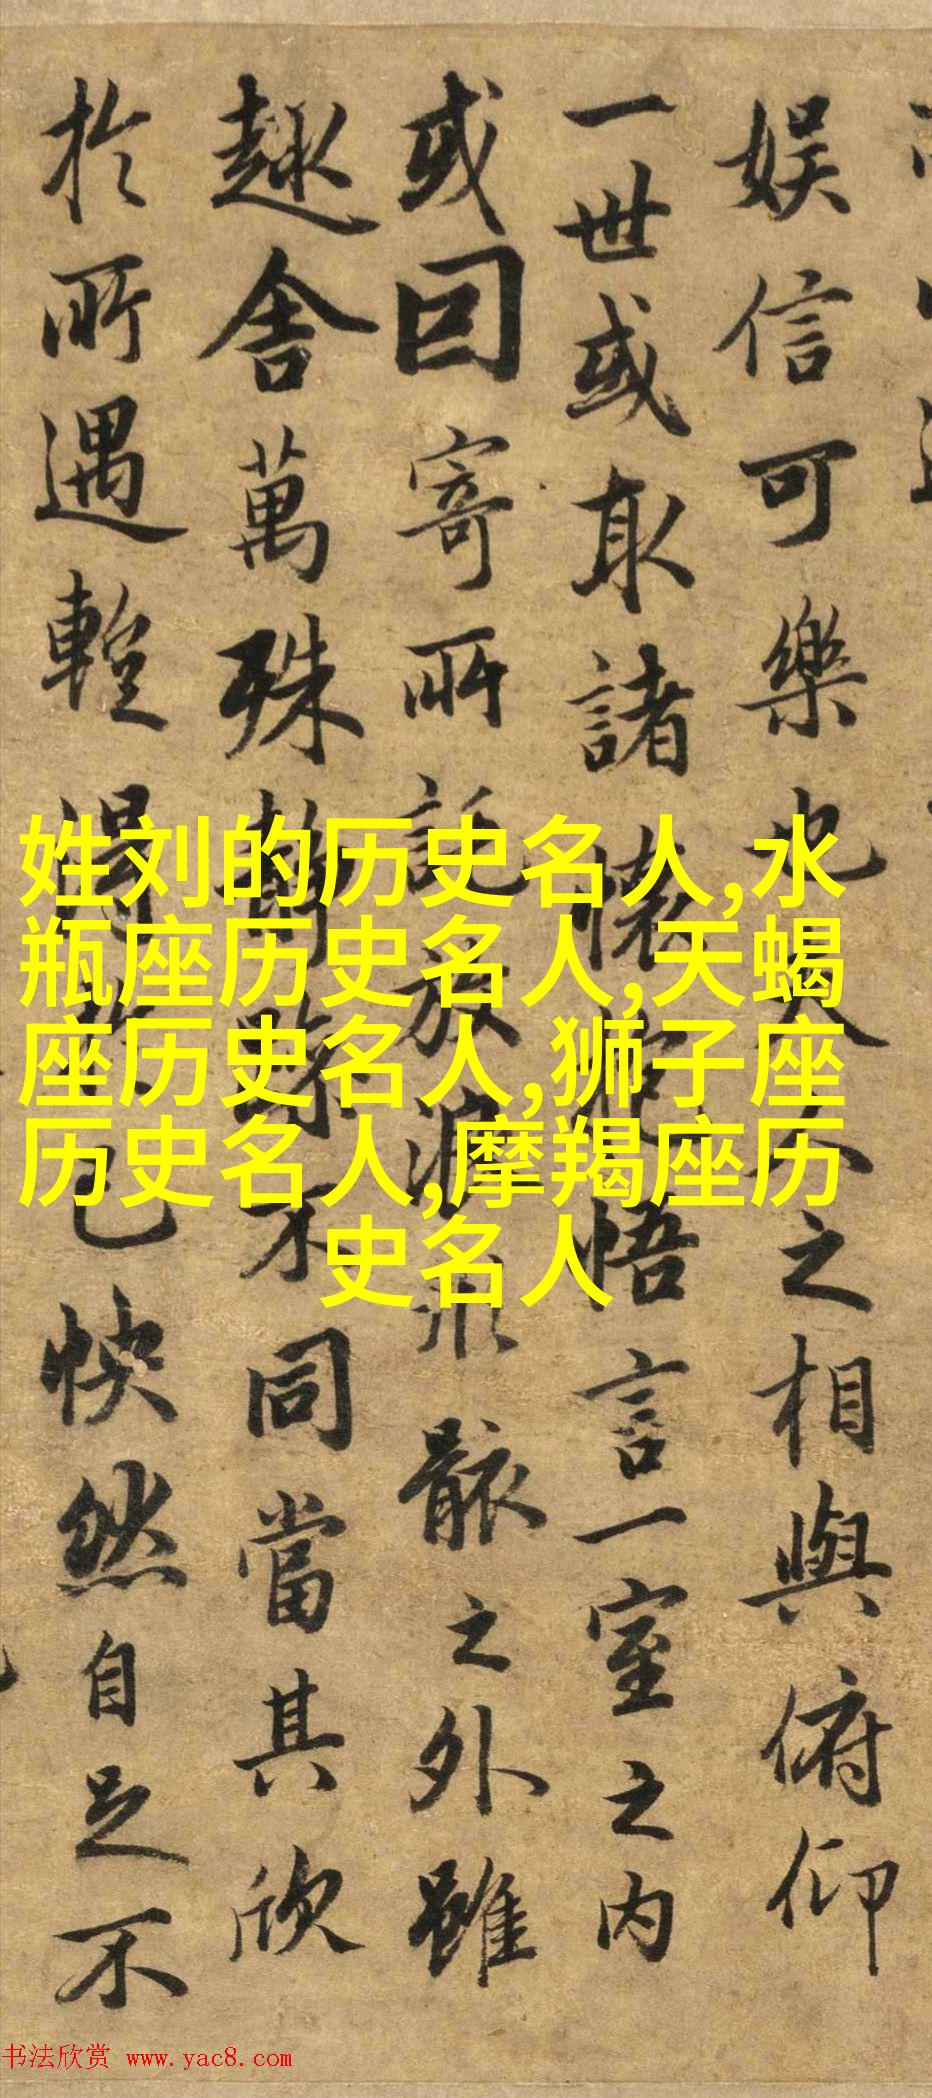 娱信可樂也夫人之相與俯仰
一世或取諸懷抱悟言一室之内
或因寄所託放浪形骸之外雖
趣舍萬殊静躁不同當其欣
於所遇暫得於己怏然自足不
姓刘的历史名人,水
瓶座历史名人,天蝎
座历史名人,狮子座
历史名人,摩羯座历
史名人
书法欣赏 www.yac8.com